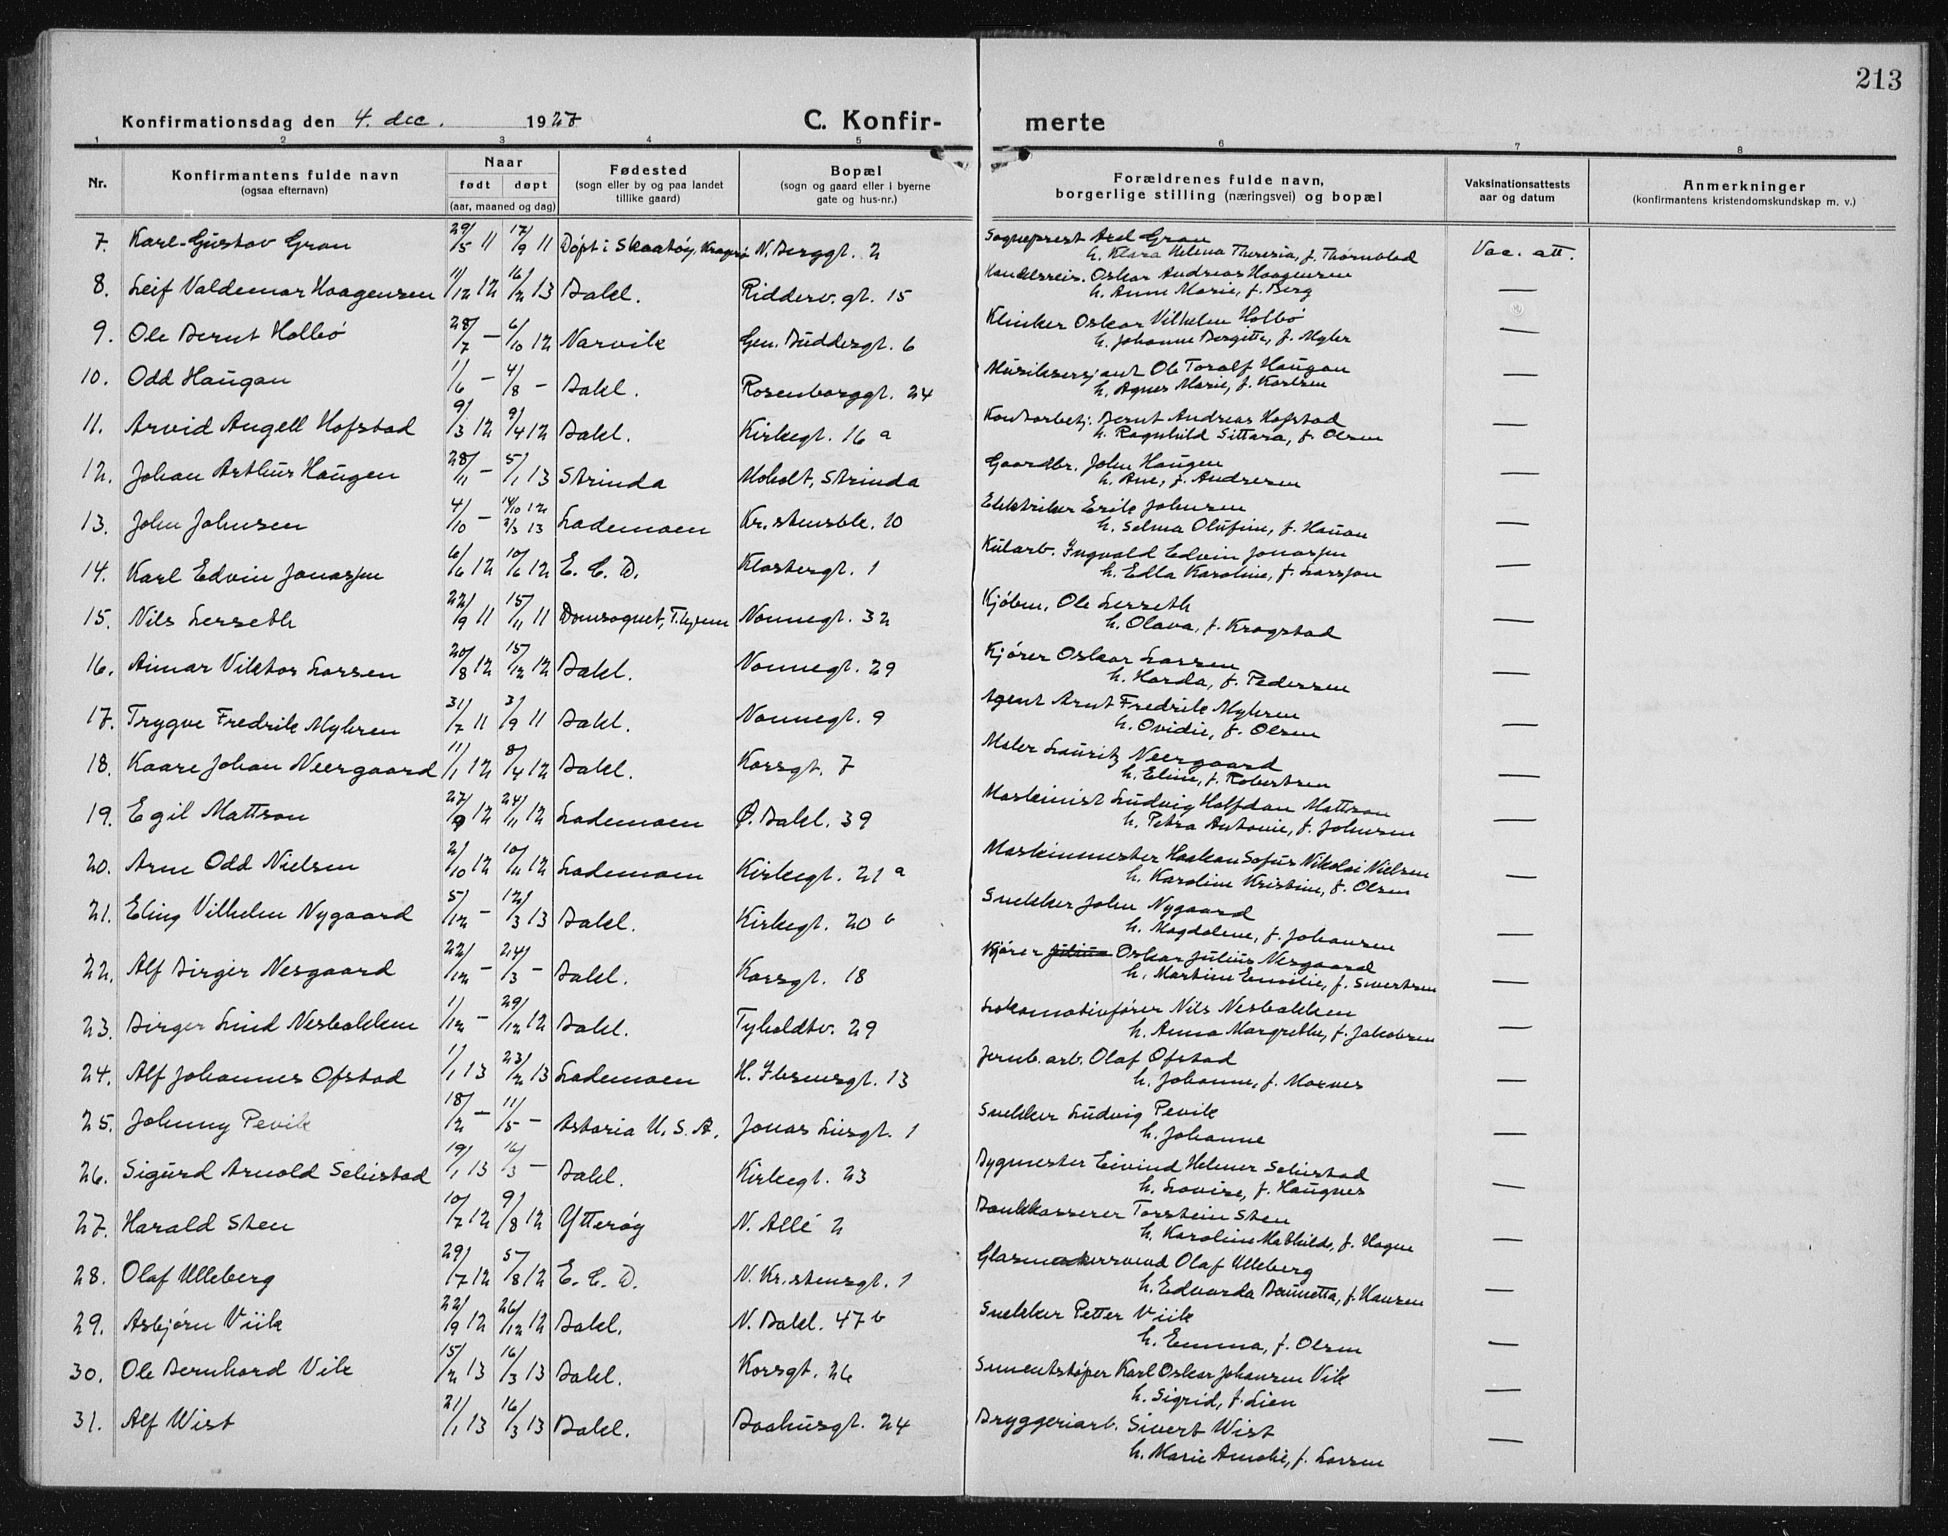 213
Konfirmationsdag den 4. dec. 1927
C. Konfirmerte
1 2 3 4 5 6 7 8
Nr.
Konfirmantens fulde navn
(ogsaa efternavn)
Naar
født døpt
(aar, maaned og dag)
Fødested
(sogn eller by og paa landet
tillike gaard)
Bopæl
(sogn og gaard eller i byerne
gate og hus-nr.)
Forældrenes fulde navn,
borgerlige stilling (næringsvei) og bopæl
Vaksinationsattests
aar og datum
Anmerkninger
(konfirmantens kristendomskundskap m. v.)
7. Karl-Gustav Gran 29/5 11 17/9 11 Døpt i Skaatøy, Kragerø N. Berggt. 2 Sogneprest Axel Gran Vac. att.
h. Klara Helena Theresia, f. Thörnblad
8. Leif Valdemar Haagensen 11/12 12 16/2 13 Bakl. Ridderv. gt. 15 Handelsreis. Oskar Andreas Haagensen —
h. Anna Marie, f. Berg
9. Ole Bernt Holbø 28/7 — 6/10 12 Narvik Gen. Buddesgt. 6 Klinker Oskar Vilhelm Holbø —
h. Johanne Bergitte, f. Myhr
10. Odd Haugan 1/6 — 4/8 — Bakl. Rosenborggt. 24 Musiksersjant Ole Toralf Haugan —
h. Agnes Marie, f. Karlsen
11. Arvid Angell Hofstad 9/3 12 9/4 12 Bakl. Kirkegt. 16 a Kontorbetj. Bernt Andreas Hofstad —
h. Ragnhild Sittara, f. Olsen
12. Johan Arthur Haugen 28/11 — 5/1 13 Strinda Moholt, Strinda Gaardbr. John Haugen —
h. Ane, f. Andresen
13. John Johnsen 4/10 — 14/10 12 2/3 13 Lademoen Kr. stensbk. 20 Elektriker Erik Johnsen —
h. Selma Olufine, f. Hauan
14. Karl Edvin Jonassen 6/6 12 10/6 12 E. C. D. Klostergt. 1 Kularb. Ingvald Edvin Jonassen —
h. Edla Karoline, f. Larsson
15. Nils Lerseth 22/9 11 15/11 11 Domsognet, T.hjem Nonnegt. 32 Kjøbm. Ole Lerseth —
h. Olava, f. Kragstad
16. Aimar Viktor Larsen 20/8 12 15/12 12 Bakl. Nonnegt. 29 Kjører Oskar Larsen —
h. Harda, f. Pedersen
17. Trygve Fredrik Myhren 31/7 11 3/9 11 Bakl. Nonnegt. 9 Agent Arnt Fredrik Myhren —
h. Ovidie, f. Olsen
18. Kaare Johan Neergaard 11/1 12 8/4 12 Bakl. Korsgt. 7 Maler Lauritz Neergaard —
h. Eline, f. Robertsen
19. Egil Mattson 27/9 12 24/11 12 Lademoen Ø. Bakl. 39 Maskinist Ludvig Halfdan Mattson —
h. Petra Antonie, f. Johnsen
20. Arne Odd Nielsen 2/10 12 10/11 12 Lademoen Kirkegt. 21 a Maskinmester Haakon Sofus Nikolai Nielsen —
h. Karoline Kristine, f. Olsen
21. Eling Vilhelm Nygaard 5/12 — 12/3 13 Bakl. Kirkegt. 20 b Snekker John Nygaard —
h. Magdalene, f. Johansen
22. Alf Birger Nesgaard 22/12 — 24/3 — Bakl. Korsgt. 18 Kjører Julius Oskar Julius Nesgaard —
h. Martine Emilie, f. Sivertsen
23. Birger Lund Nesbakken 1/12 — 29/12 12 Bakl. Tyholdtv. 29 Lokomotivfører Nils Nesbakken —
h. Anna Margrethe, f. Jakobsen
24. Alf Johannes Ofstad 1/1 13 23/2 13 Lademoen H. Ibsensgt. 13 Jernb. arb. Olaf Ofstad —
h. Johanne, f. Moxnes
25. Johnny Pevik 18/2 — 11/5 — Astoria U. S. A. Jonas Liesgt. 1 Snekker Ludvig Pevik —
h. Johanne
26. Sigurd Arnold Selistad 19/1 13 16/3 — Bakl. Kirkegt. 23 Bygmester Eivind Helmer Selistad —
h. Lovise, f. Haugnes
27. Harald Sten 10/7 12 9/8 12 Ytterøy N. Allé 2 Bankkasserer Torstein Sten —
h. Karoline Mathilde, f. Hagen
28. Olaf Ulleberg 29/7 12 5/8 12 E. C. D. N. Kr. stensgt. 1 Glasmakersvend Olaf Ulleberg —
h. Edvarda Brunetta, f. Hansen
29. Asbjørn Viik 22/9 12 26/12 12 Bakl. N. Bakl. 47 b Snekker Petter Viik —
h. Emma, f. Olsen
30. Ole Bernhard Vik 15/2 13 16/3 13 Bakl. Korsgt. 26 Sementstøper Karl Oskar Johansen Vik —
h. Sigrid, f. Lien
31. Alf Wist 21/1 13 16/3 13 Bakl. Baahusgt. 24 Bryggeriarb. Sivert Wist —
h. Marie Amalie, f. Larsen